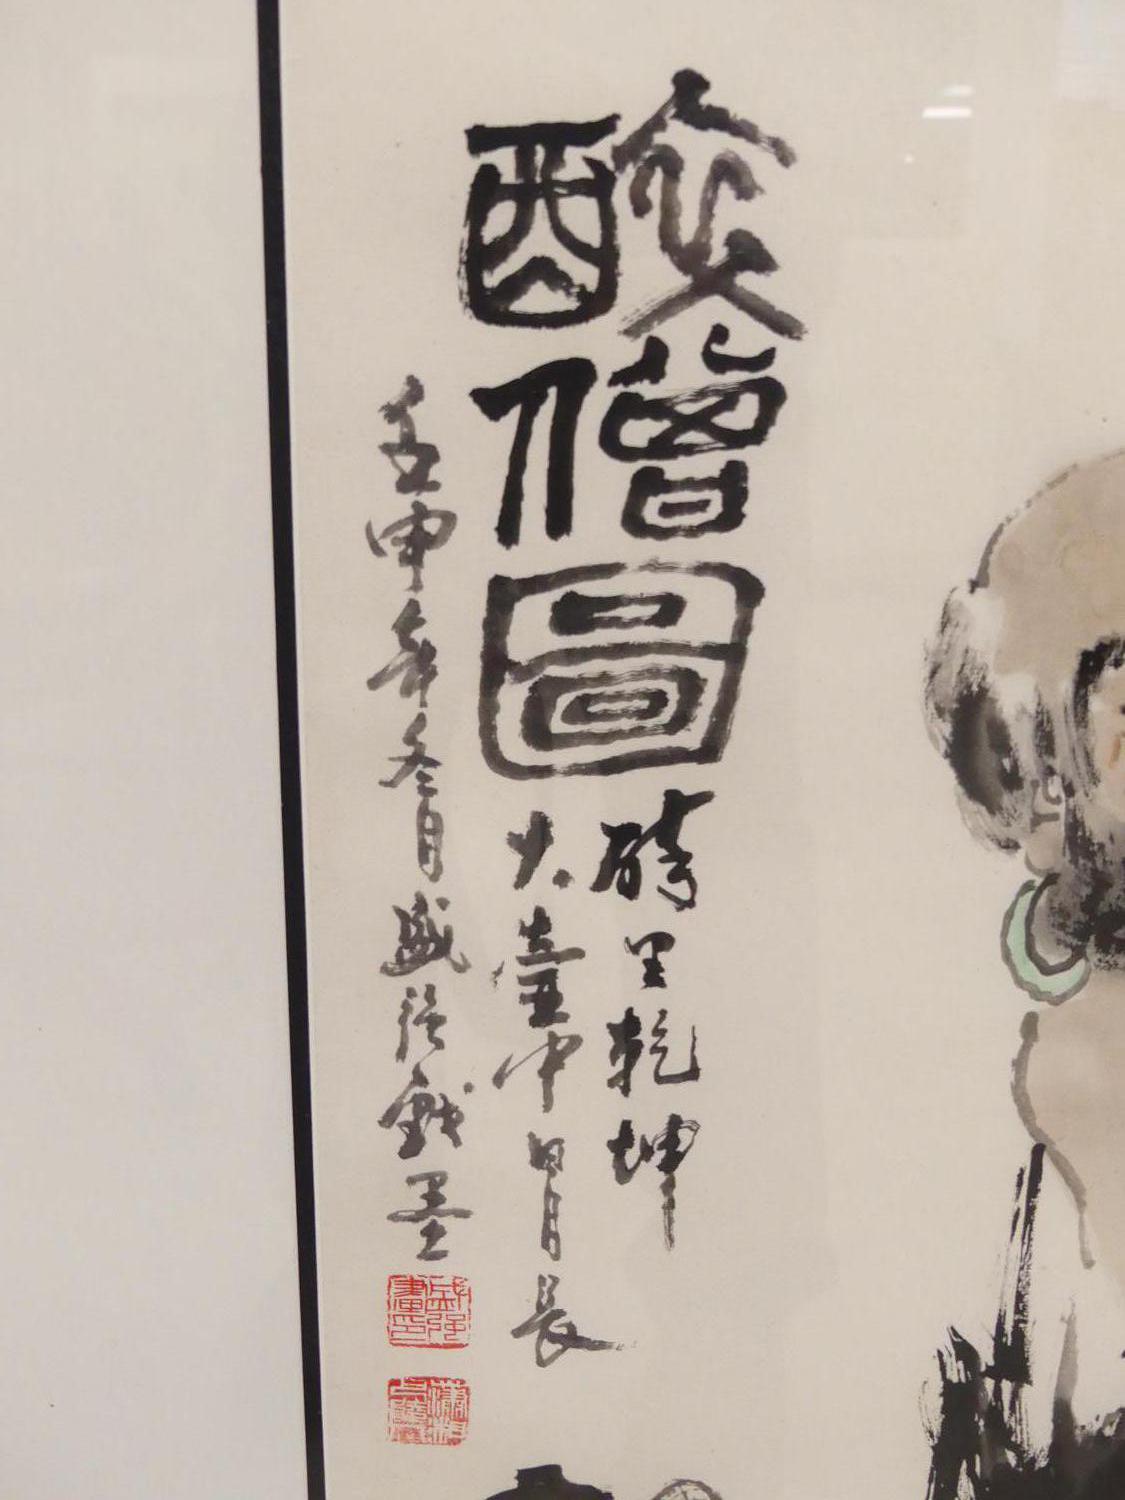 醉僧圖
醉里乾坤大
壺中日月長
壬申年冬月盛強戲墨
盛強書印